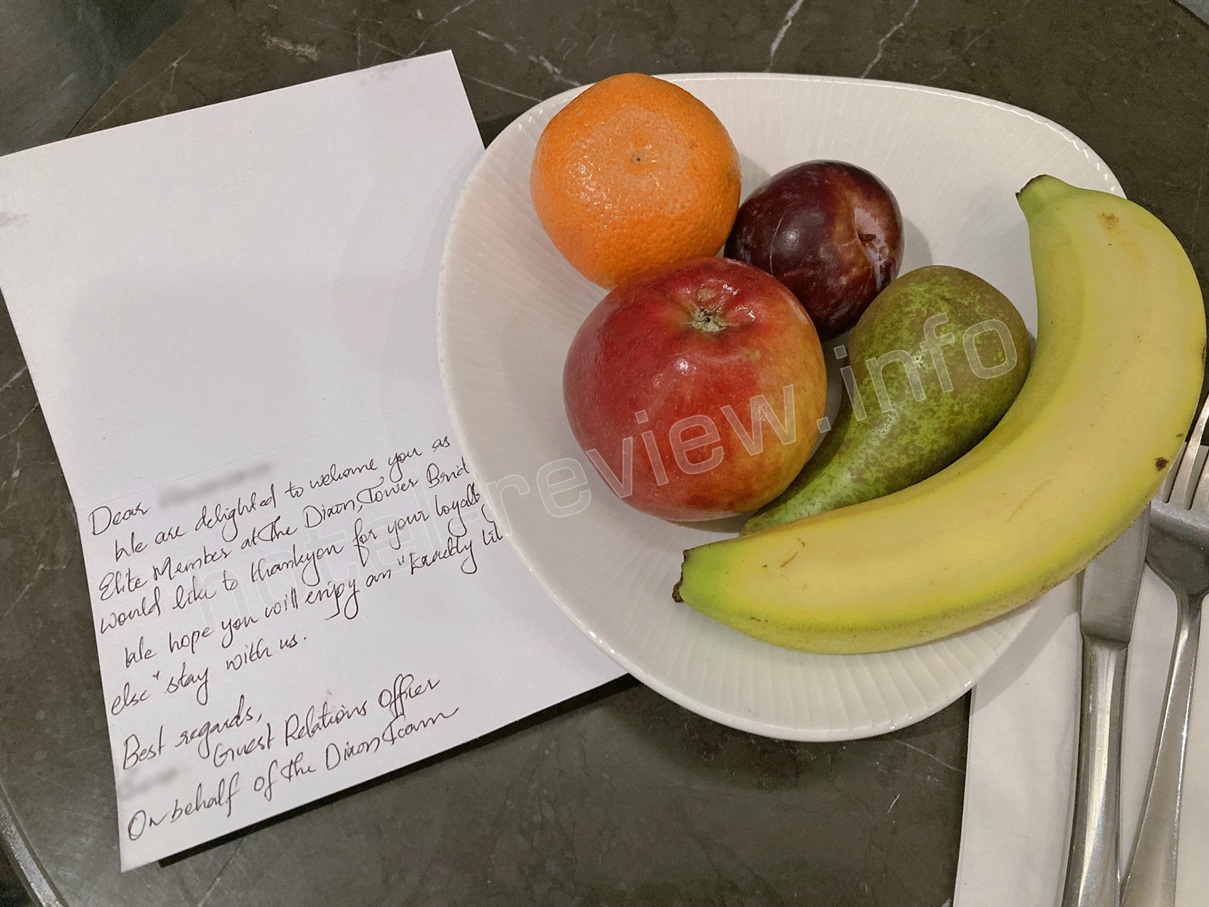 Dear
We are delighted to welcome you as
Elite Member at the Dixon, Tower Brid
would like to thankyou for your loyalty
We hope you will enjoy an "Exactly lik
else" stay with us.
Best regards,
Guest Relations Officer
On behalf of the Dixon Team
hotel-review.info